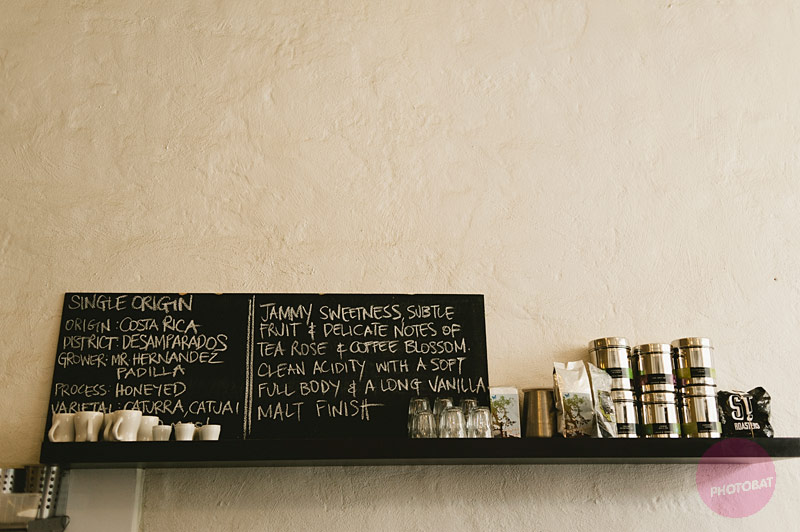 SINGLE ORIGIN
ORIGIN: COSTA RICA
DISTRICT: DESAMPARADOS
GROWER: MR. HERNANDEZ
PADILLA
PROCESS: HONEYED
VARIETAL: CATURRA, CATUAI
JAMMY SWEETNESS, SUBTLE
FRUIT & DELICATE NOTES OF
TEA ROSE & COFFEE BLOSSOM.
CLEAN ACIDITY WITH A SOFT
FULL BODY & A LONG VANILLA
MALT FINISH
ROASTERS
PHOTOBAT